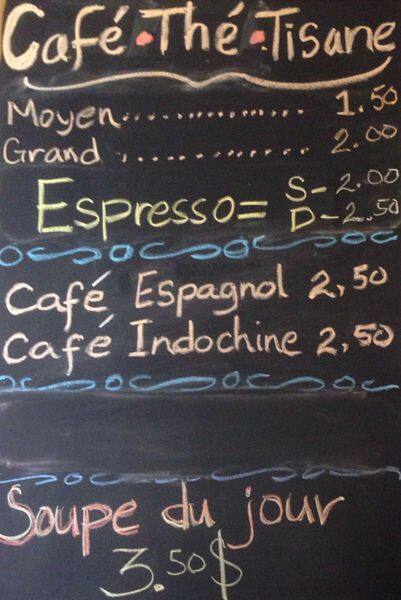 Café • Thé • Tisane
Moyen.................. 1.50
Grand .................. 2.00
Espresso= S- 2.00
D- 2.50
Café Espagnol 2,50
Café Indochine 2,50
Soupe du jour
3.50$